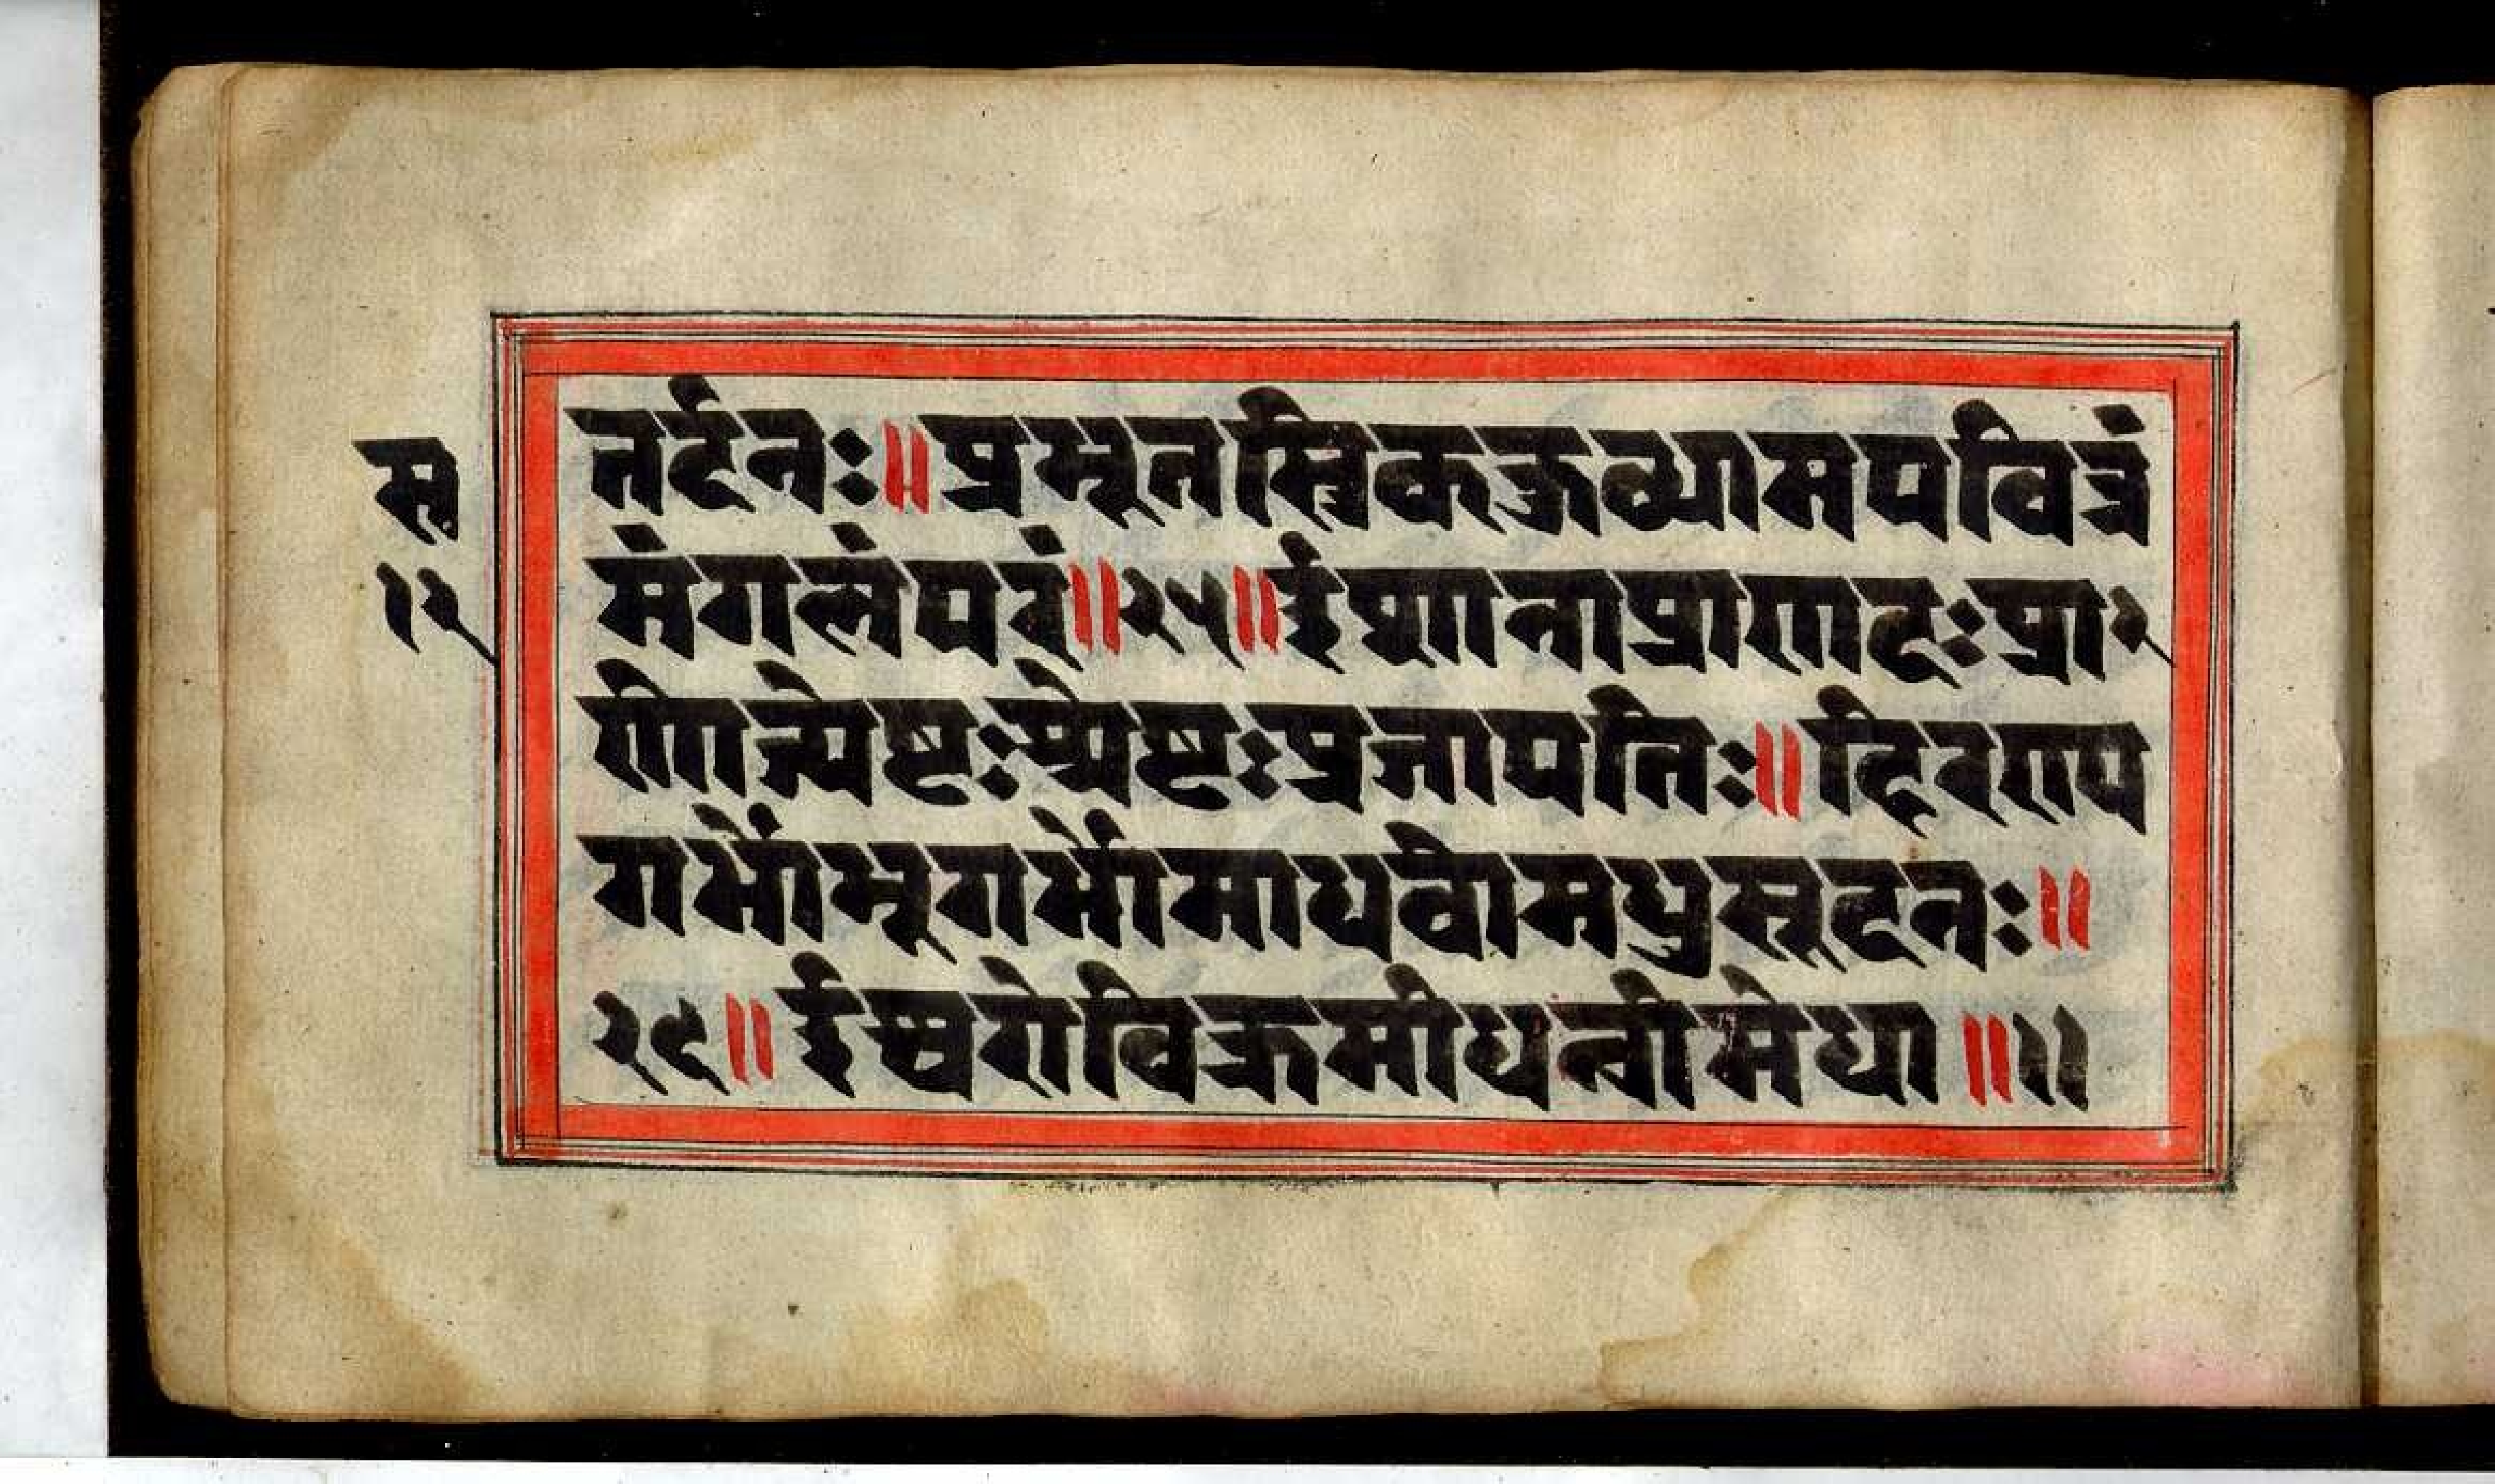 तर्दनः॥प्रभूतस्त्रिककुब्धामपवित्रं
स
मंगलंपरं॥२५॥ईशानाप्राणदःप्रा२
१२
णोज्येष्टःश्रेष्टःप्रजापतिः॥हिरण्य
गर्भोभूगर्भोमाधवोमधुसूदनः॥
२९॥ईश्वरोविक्रमीधन्वीमेधा॥॥